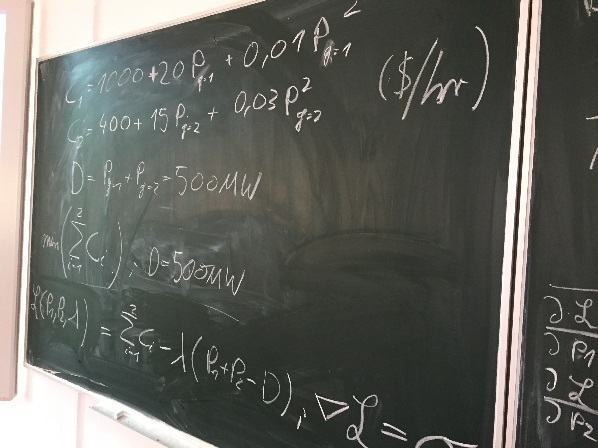 C₁ = 1000 + 20 P_{g=1} + 0,01 P²_{g=1}
($/hr)
C₂ = 400 + 15 P_{g=2} + 0,03 P²_{g=2}
D = P_{g=1} + P_{g=2} = 500MW
min(∑_{i=1}^{2} C_i), D = 500MW
ℒ(P₁,P₂,λ) = ∑_{i=1}^{2} C_i − λ(P₁ + P₂ − D), ∇ℒ =
∂ℒ
∂P₁
∂ℒ
∂P₂